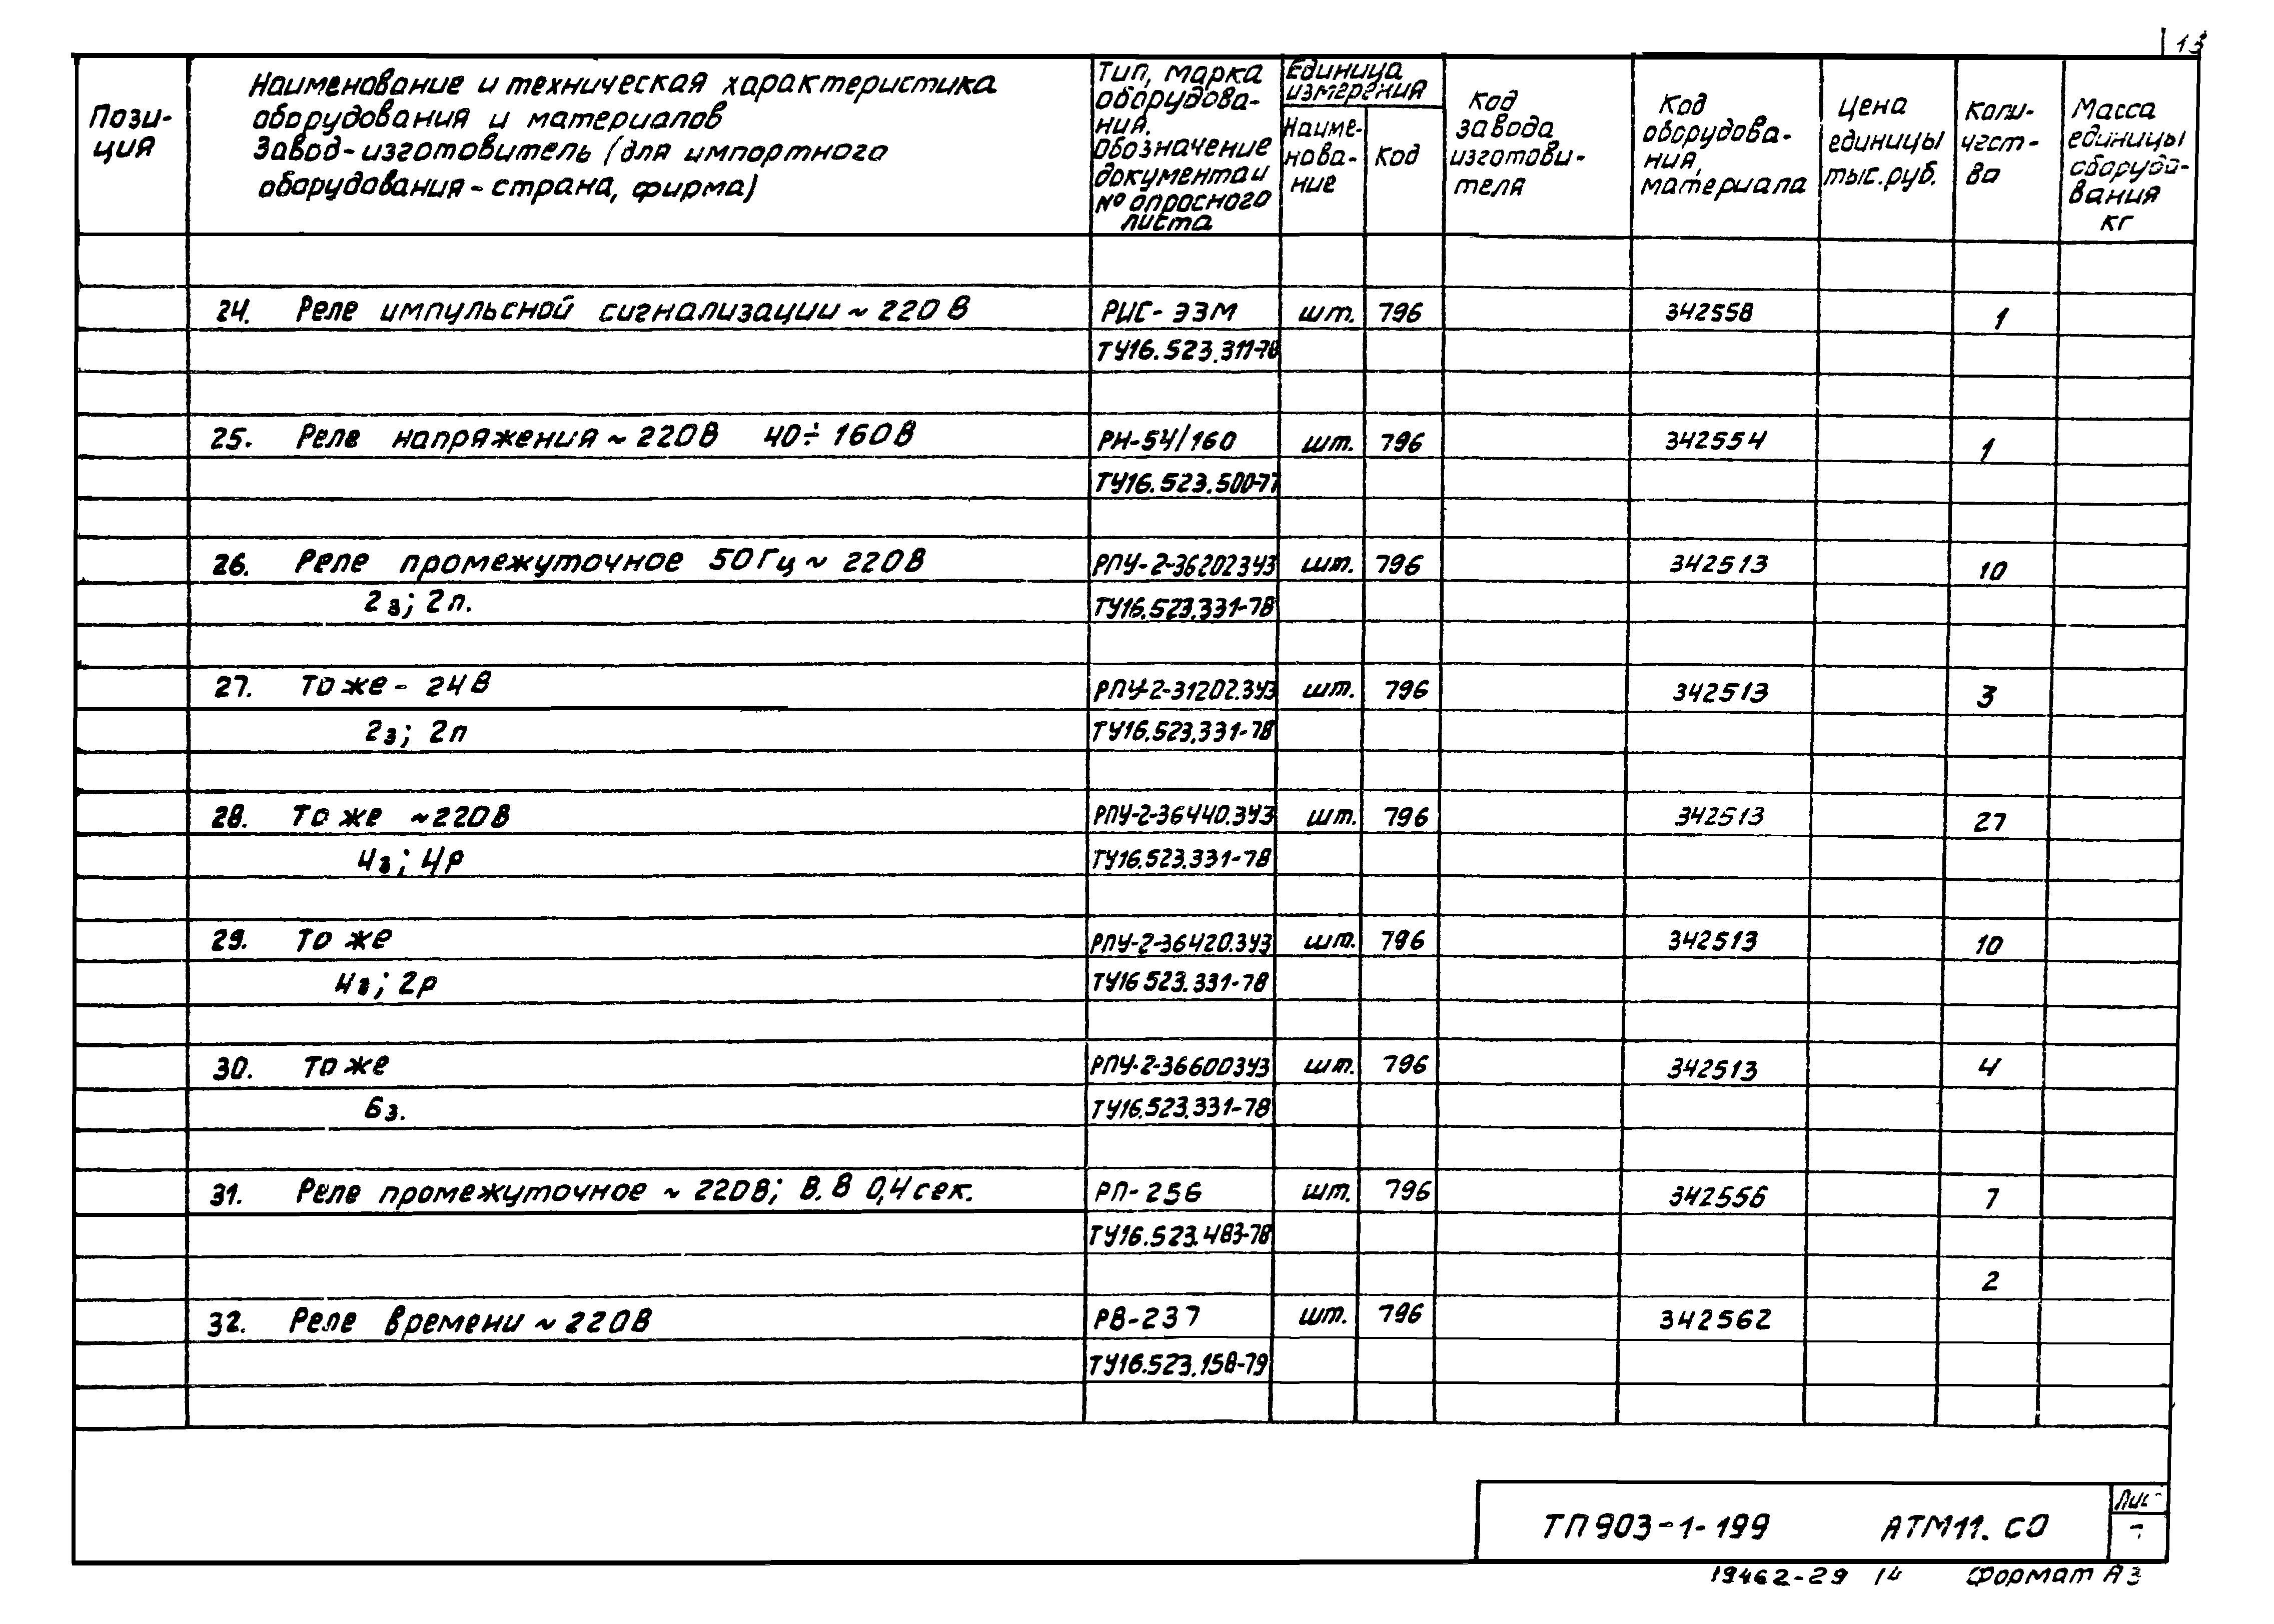 13
Пози-
ция
Наименование и техническая характеристика
оборудования и материалов
Завод-изготовитель (для импортного
оборудования - страна, фирма)
Тип, марка
оборудова-
ния.
Обозначение
документа и
№ опросного
листа
Единица
измерения
Наиме-
нова-
ние
Код
Код
завода
изготови-
теля
Код
оборудова-
ния,
материала
Цена
единицы
тыс.руб.
Коли-
чест-
ва
Масса
единицы
оборудо-
вания
кг
24. Реле импульсной сигнализации ~ 220 В РИС-ЭЗМ шт. 796 342558 1
ТУ16.523.311-78
25. Реле напряжения ~ 220В 40÷160В РН-54/160 шт. 796 342554 1
ТУ16.523.500-77
26. Реле промежуточное 50Гц ~ 220В РПУ-2-362023У3 шт. 796 342513 10
2з; 2п. ТУ16.523.331-78
27. То же - 24В РПУ-2-31202.3У3 шт. 796 342513 3
2з; 2п ТУ16.523.331-78
28. То же ~220В РПУ-2-36440.3У3 шт. 796 342513 27
4з; 4р ТУ16.523.331-78
29. То же РПУ-2-36420.3У3 шт. 796 342513 10
4з; 2р ТУ16 523.331-78
30. То же РПУ-2-366003У3 шт. 796 342513 4
6з. ТУ16.523.331-78
31. Реле промежуточное ~ 220В; В.В 0,4сек. РП-256 шт. 796 342556 7
ТУ16.523.483-78
2
32. Реле времени ~ 220В РВ-237 шт. 796 342562
ТУ16.523.158-79
ТП903-1-199 АТМ11.СО
19462-29 14 Формат А3